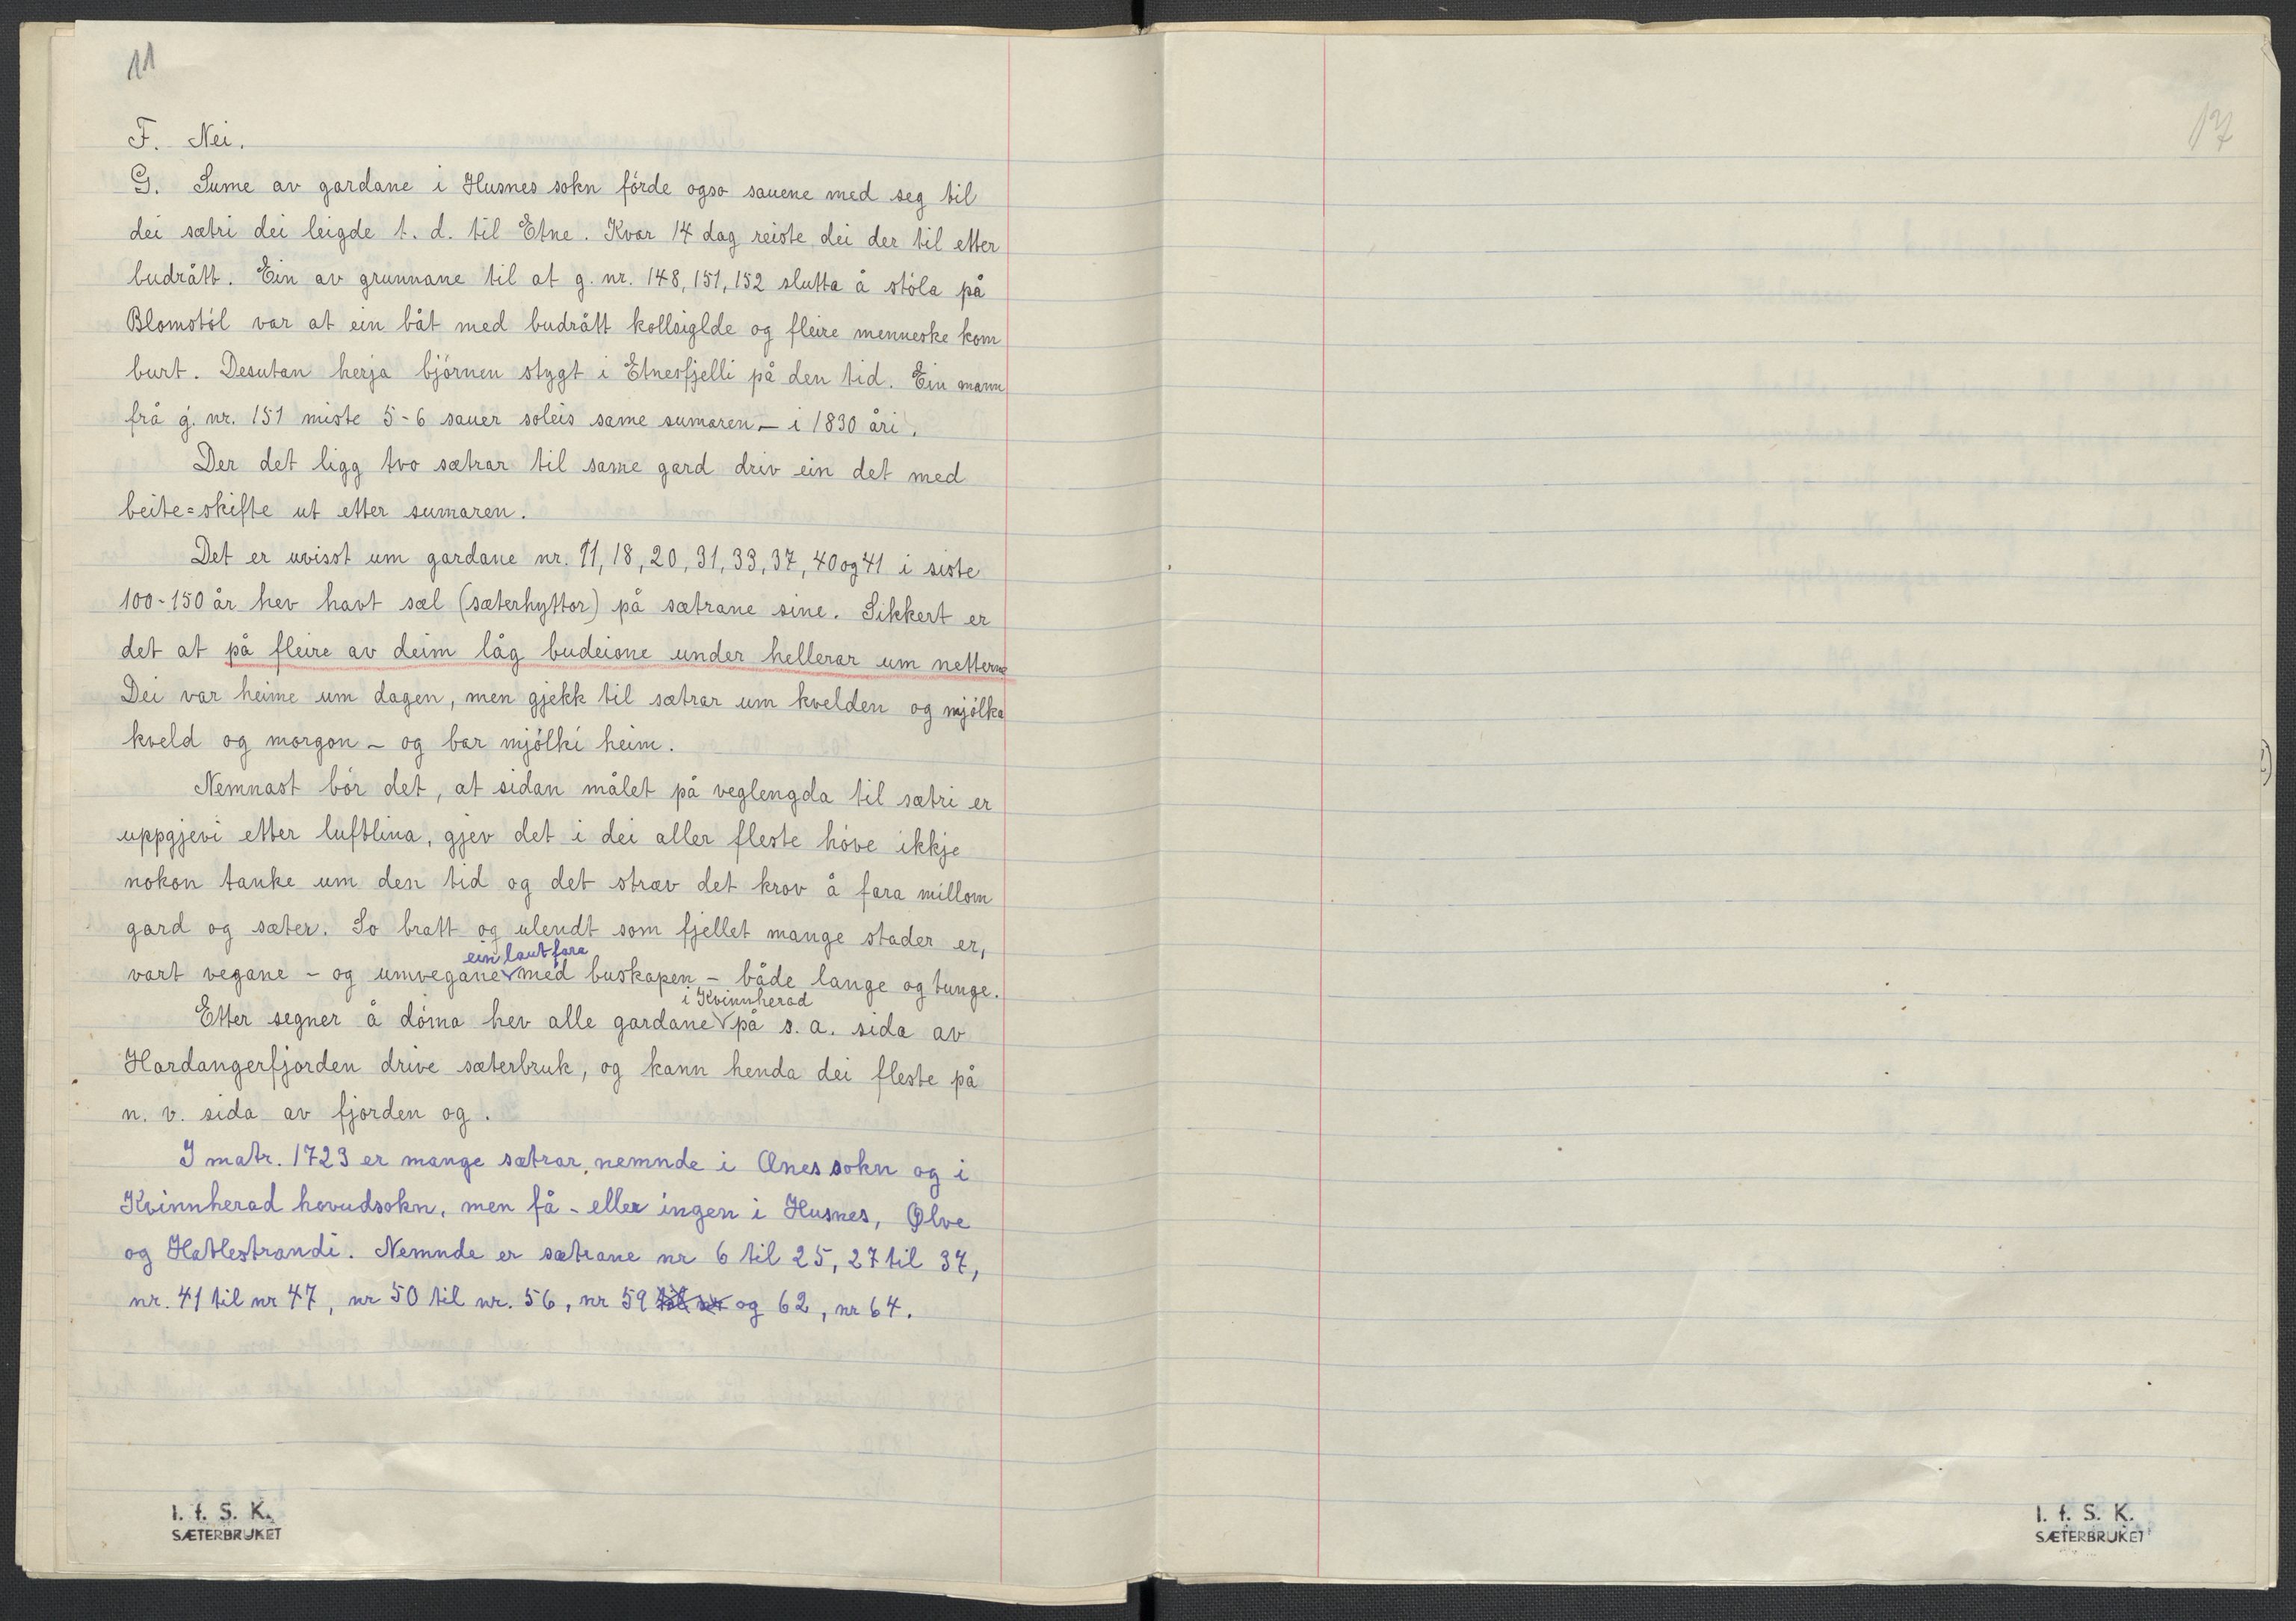 11
F. Nei.
G. Sume av gardane i Husnes sokn fórde ogso sauene med seg til
dei sætri dei leigde t. d. til Etne. Kvar 14 dag reiste dei der til etter
budrått. Ein av grunnane til at g. nr. 148, 151, 152 slutta å stóla på
Blomstól var at ein båt med budrått kollsiglde og fleire menneske kom
burt. Desutan herja bjórnen stygt i Etnesfjelli på den tid. Ein mann
frå g. nr. 151 miste 5-6 sauer soleis same sumaren – i 1830 åri.
Der det ligg tvo sætrar til same gard driv ein det med
beite=skifte ut etter sumaren.
Det er uvisst um gardane nr. 11, 18, 20, 31, 33, 37, 40 og 41 i siste
100-150 år hev havt sæl (sæterhyttor) på sætrane sine. Sikkert er
det at på fleire av deim låg budeione under hellerar um netterne
Dei var heime um dagen, men gjekk til sætrar um kvelden og mjólka
kveld og morgon – og bar mjólki heim.
Nemnast bór det, at sidan målet på veglengda til sætri er
uppgjevi etter luftlina, gjev det i dei aller fleste hóve ikkje
nokon tanke um den tid og det stræv det krov å fara millom
gard og sæter. So bratt og ulendt som fjellet mange stader er,
ein laut fara
vart vegane – og umvegane med buskapen – både lange og tunge.
i Kvinnherad
Etter segner å dóma hev alle gardane på s. a. sida av
Hardangerfjorden drive sæterbruk, og kann henda dei fleste på
n. v. sida av fjorden og.
I matr. 1723 er mange sætrar, nemnde i Ænes sokn og i
Kvinnherad hovudsokn, men få – eller ingen i Husnes, Ølve
og Hatlestrandi. Nemnde er sætrane nr 6 til 25, 27 til 37,
nr. 41 til nr 47, nr 50 til nr. 56, nr 59 til nr og 62, nr 64.
I. f. S. K.
SÆTERBRUKET
I. f. S. K.
SÆTERBRUKET